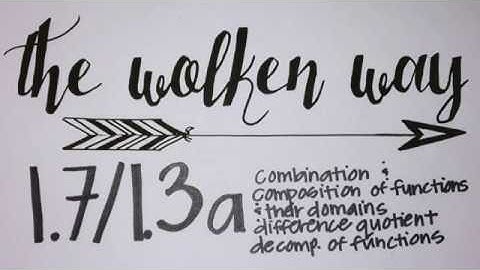 the wolken way
1.7/1.3a
combination &
composition of functions
& their domains
difference quotient
decomp. of functions